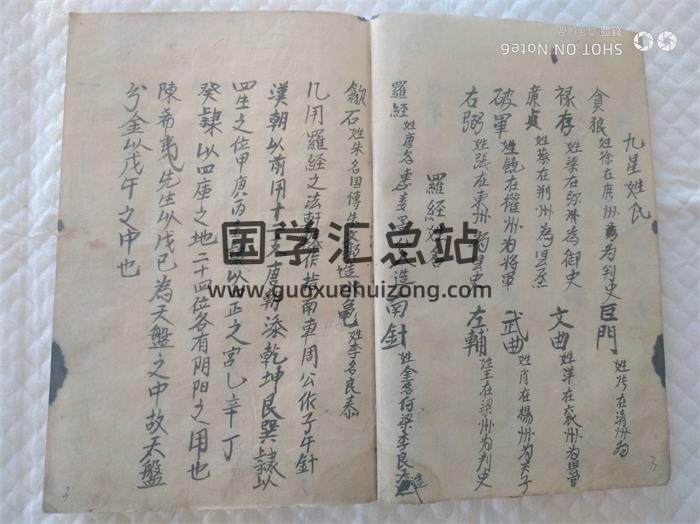 九星姓氏
貪狼 姓徐在 州 為判史 巨門 姓 在清州為
禄存 姓梁在 州為御史 文曲 姓洋在袞州為
廉貞 姓蔡在荆州為县丞
破軍 姓饒在 州為將軍 武曲 姓肖在楊州為天子
右弼 姓張在東州為 史 左輔 姓王在梁州為判史
羅經
羅經 姓 名 造 南針 姓金名何梁李良 造
歙石 姓朱名国傳朱 造 龜 姓李名民泰
凡用羅經之法軒 作指南車周公作子午針
漢朝以前用十二支唐朝添乾坤艮巽隸以
四生之位甲庚丙 以 正之宫乙辛丁
癸隸以四庫之地二十四位各有阴阳之用也
陳希夷先生以戊己為天盤之中故天盤
分金以戊午之中也
3
3
国学汇总站
www.guoxuehuizong.com
SHOT ON NOTE6